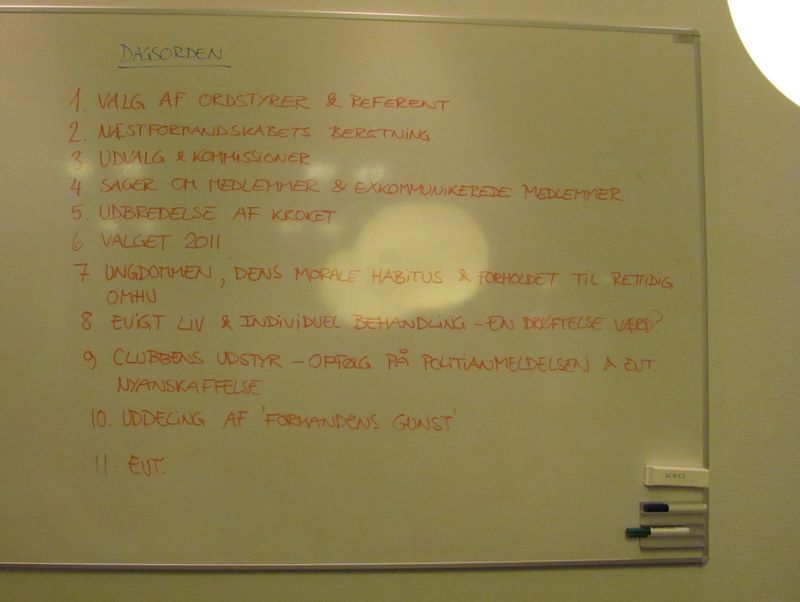 DAGSORDEN
1. VALG AF ORDSTYRER & REFERENT
2. NÆSTFORMANDSKABETS BERETNING
3 UDVALG & KOMMISSIONER
4. SAGER OM MEDLEMMER & EXKOMMUNIKEREDE MEDLEMMER
5. UDBREDELSE AF KROKET
6 VALGET 2011
7. UNGDOMMEN, DENS MORALE HABITUS & FORHOLDET TIL RETTIDIG
OMHU
8. EVIGT LIV & INDIVIDUEL BEHANDLING - EN DRØFTELSE VÆRD?
9. CLUBBENS UDSTYR - OPFØLG PÅ POLITIANMELDELSEN & EVT.
NYANSKAFFELSE
10. UDDELING AF 'FORMANDENS GUNST'
11. EVT.